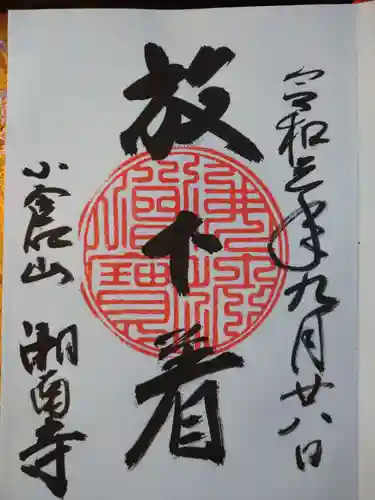 令和三年九月廿八日
放下着
小倉山
湘南寺